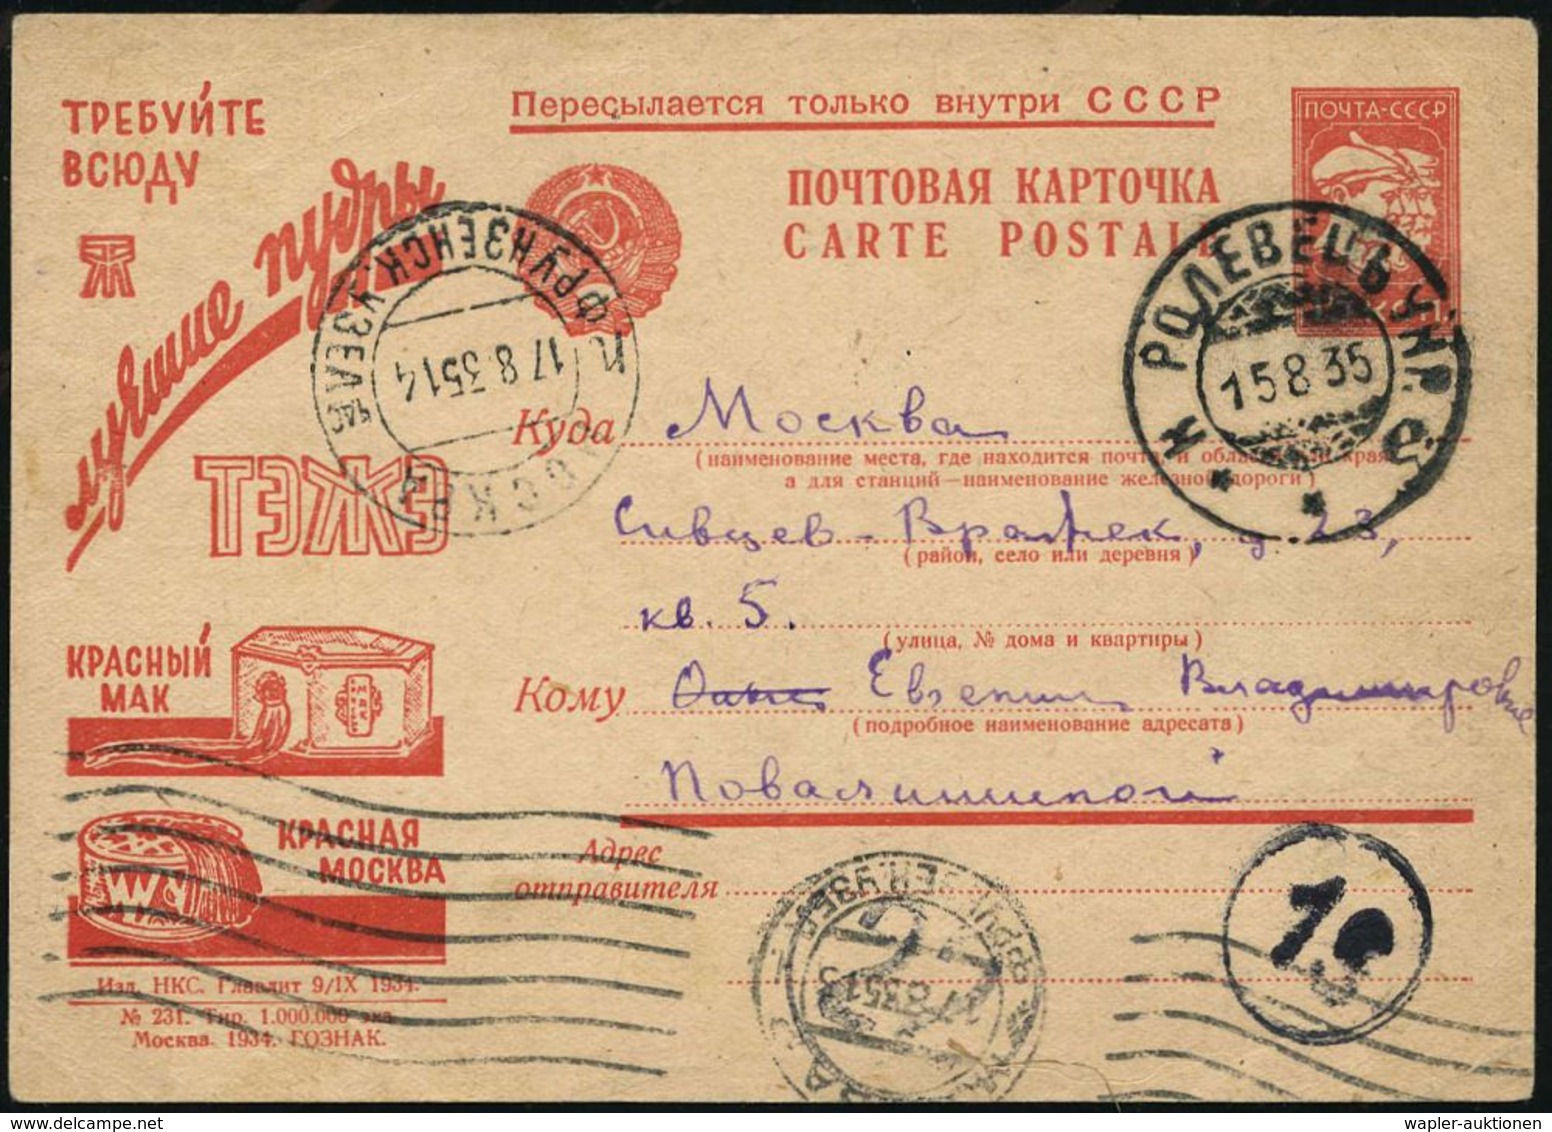 ТРЕБУЙТЕ
ВСЮДУ
лучшие пудры
ТЭЖЭ
Пересылается только внутри СССР
ПОЧТОВАЯ КАРТОЧКА
CARTE POSTALE
ПОЧТА-СССР
ФРУНЗЕНСК. УЗЕЛ
17 8 35 14
РОЛЕВЕЦЬ УКР.
15 8 35
Куда Москва
(наименование места, где находится почта, и области или края,
а для станций—наименование железной дороги)
Сивцев-Вражек, д. 23,
(район, село или деревня)
кв. 5.
(улица, № дома и квартиры)
Кому Евгении Владимировне
(подробное наименование адресата)
Повалишиной
Адрес
отправителя
КРАСНЫЙ
МАК
КРАСНАЯ
МОСКВА
Изд. НКС. Главлит 9/IX 1934.
№ 231. Тир. 1.000.000 экз.
Москва. 1934. ГОЗНАК.
wapler-auktionen